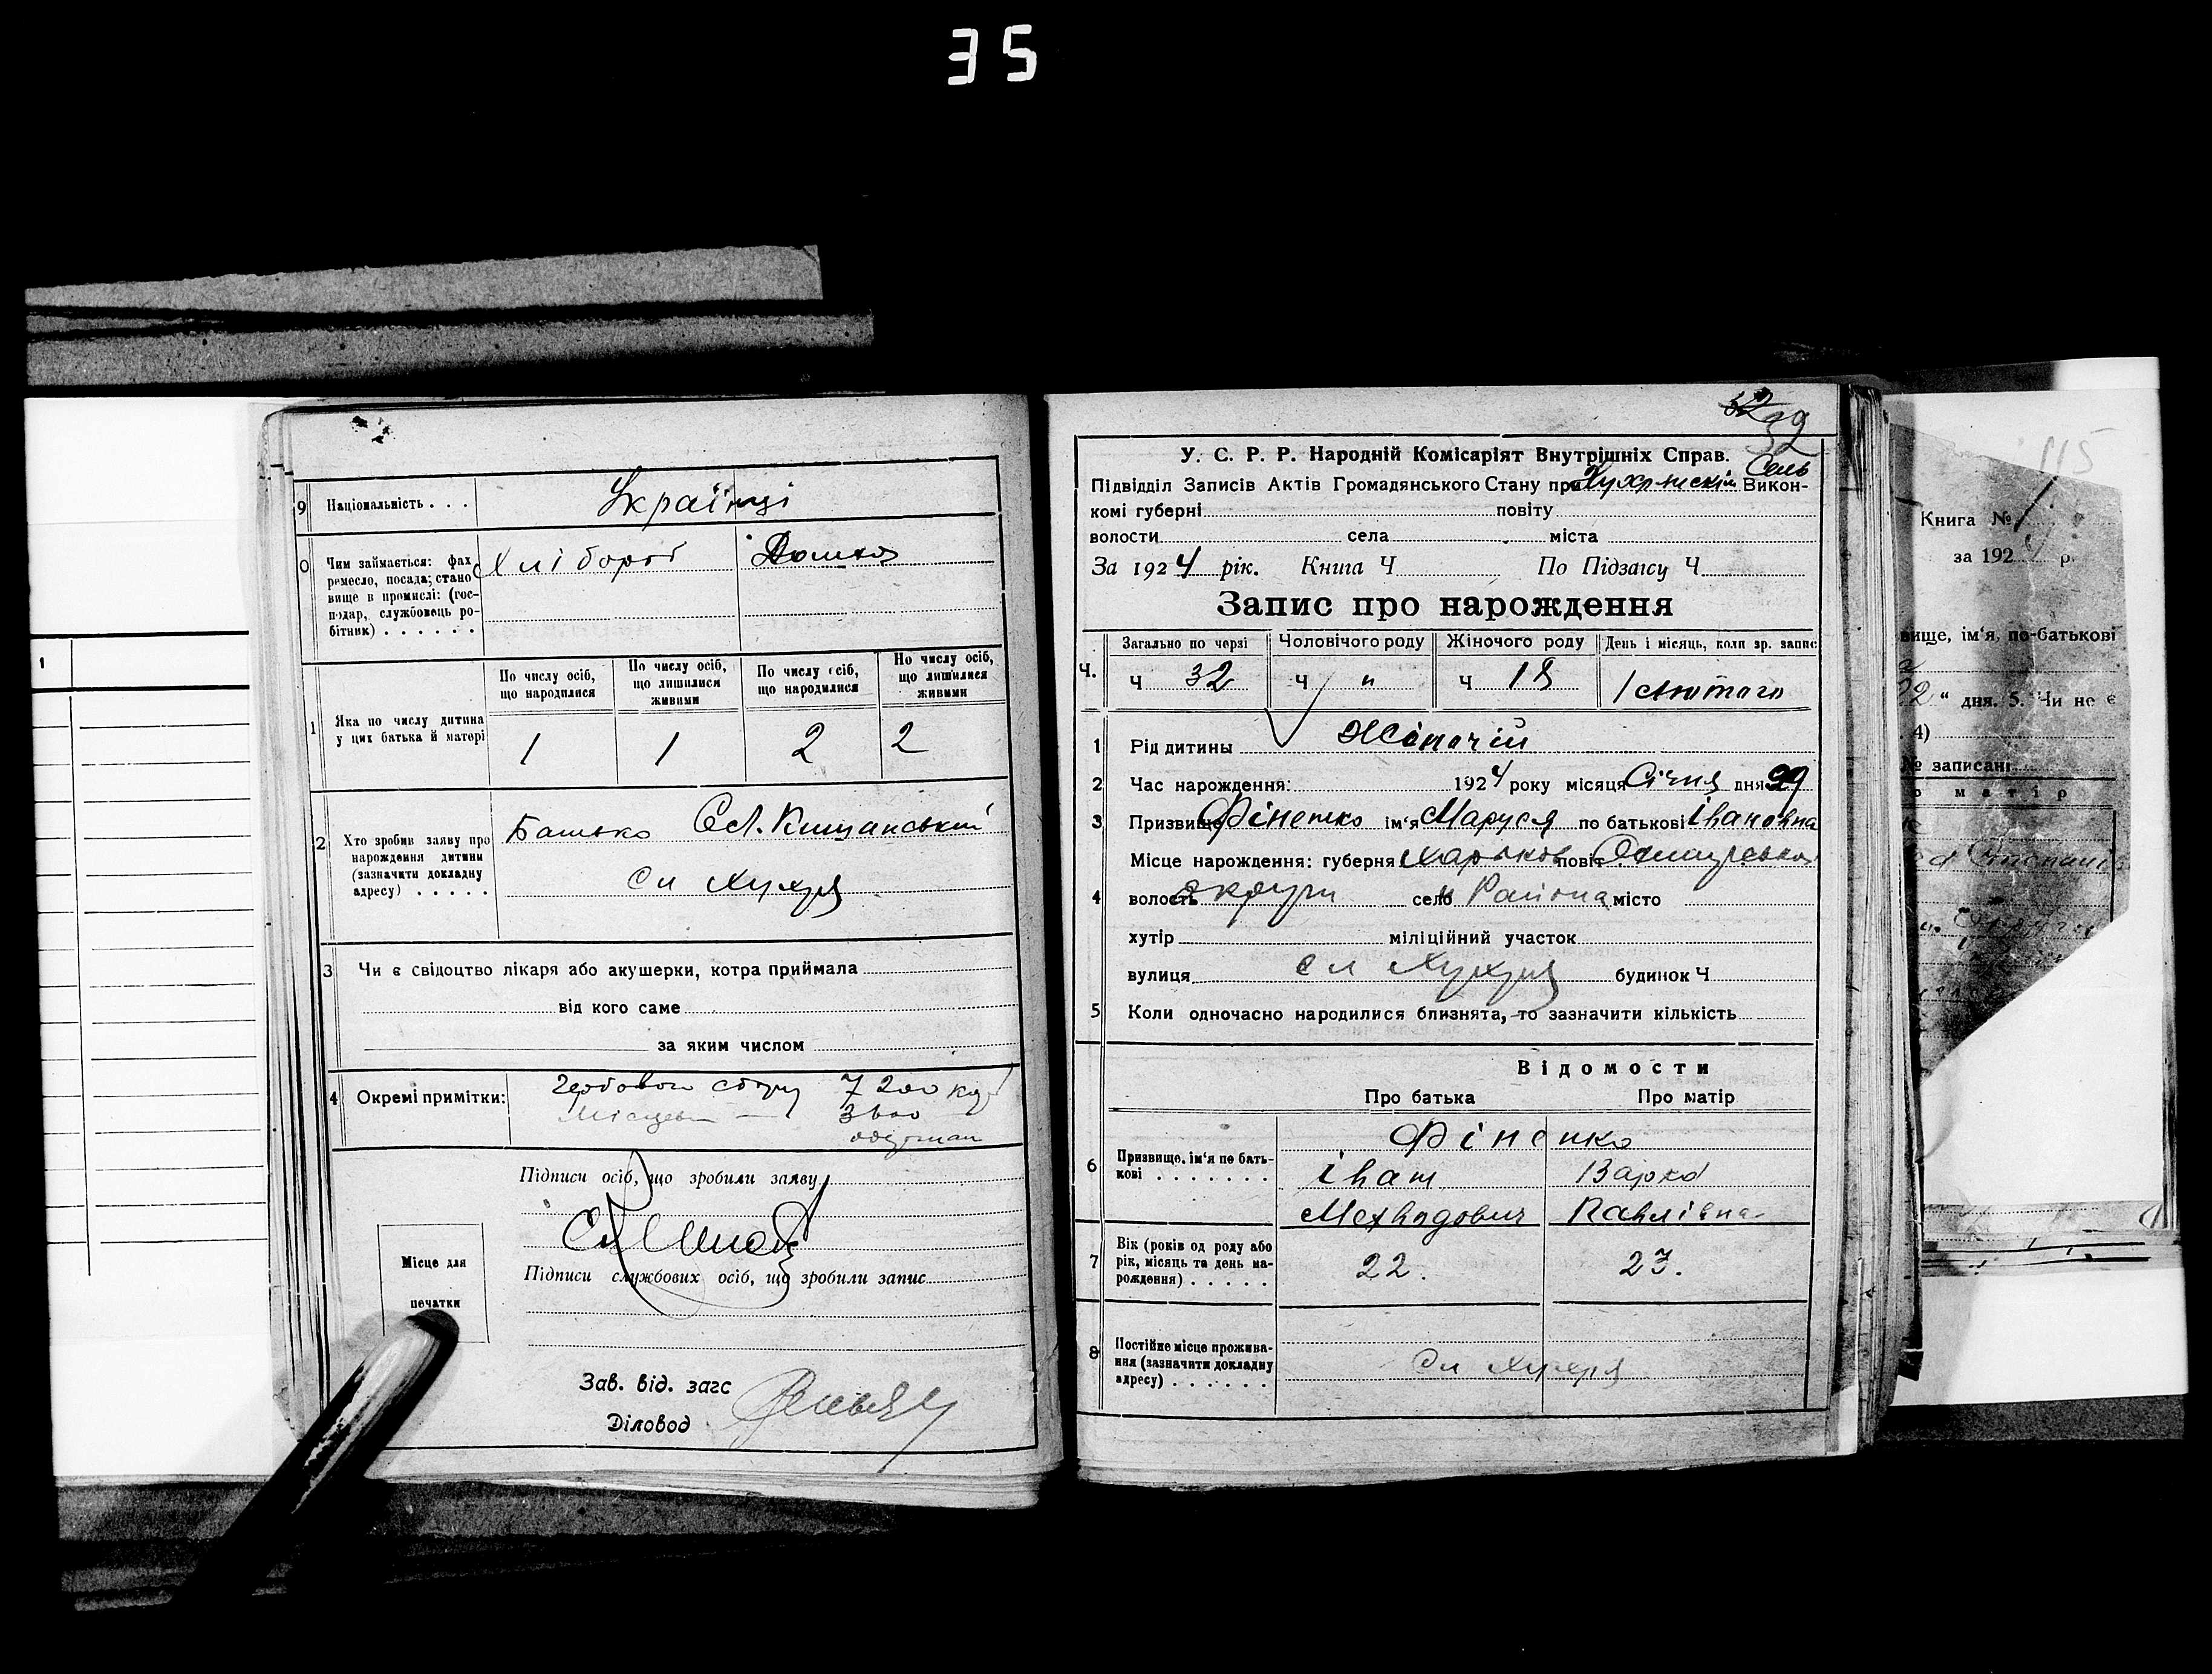 35
9 Національність . . . Українці
0 Чим займається: фах
ремесло, посада; стано
вище в промислі: (гос-
подар, службовець ро-
бітник) . . . . . .
Хлібороб
1 Яка по числу дитина
у цих батька й матері
По числу осіб,
що народилися
По числу осіб,
що лишилися
живими
По числу осіб,
що народилися
По числу осіб,
що лишилися
живими
1 1 2 2
2 Хто зробив заяву про
нарождення дитини
(зазначити докладну
адресу) . . . . .
Батько
сл Хухря
3 Чи є свідоцтво лікаря або акушерки, котра приймала
від кого саме
за яким числом
4 Окремі примітки: гербового збору 7 200 
Місцев — 3600
Підписи осіб, що зробили заяву
Підписи службових осіб, що зробили запис
Місце для
печатки
Зав. від. загс
Діловод
32
У. С. Р. Р. Народній Комісаріят Внутрішніх Справ.
Сель
Підвідділ Записів Актів Громадянського Стану при Викон-
комі губерні повіту
волости села міста
За 1924 рік. Книга Ч По Підзагсу Ч
Запис про нарождення
Ч. Загально по черзі Чоловічого роду Жіночого роду День і місяць, коли зр. запис
Ч 32 Ч " Ч 18 1 лютого
1 Рід дитини Жіночій
2 Час нарождення: 1924 року місяця Січня дня 29
3 Призвище Фіненко ім'я Маруся по батькові Івановна
4 Місце нарождення: губерня Харьков повіт
волость округи село Района місто
хутір міліційний участок
вулиця сл Хухря будинок Ч
5 Коли одночасно народилися близнята, то зазначити кількість
Відомости
Про батька Про матір
6 Призвище, ім'я по бать-
кові . . . . . . .
Фіненко
Іван Варка
Мефодович Павлівна
7 Вік (років од роду або
рік, місяць та день на-
рождення) . . . . .
22. 23.
8 Постійне місце прожива-
ння (зазначити докладну
адресу) . . . . . .
сл Хухря
115
Книга № 1
за 192 р.
вище, ім'я, по-батькові
" дня. 5. Чи не є
4)
№ записані
о матір
1